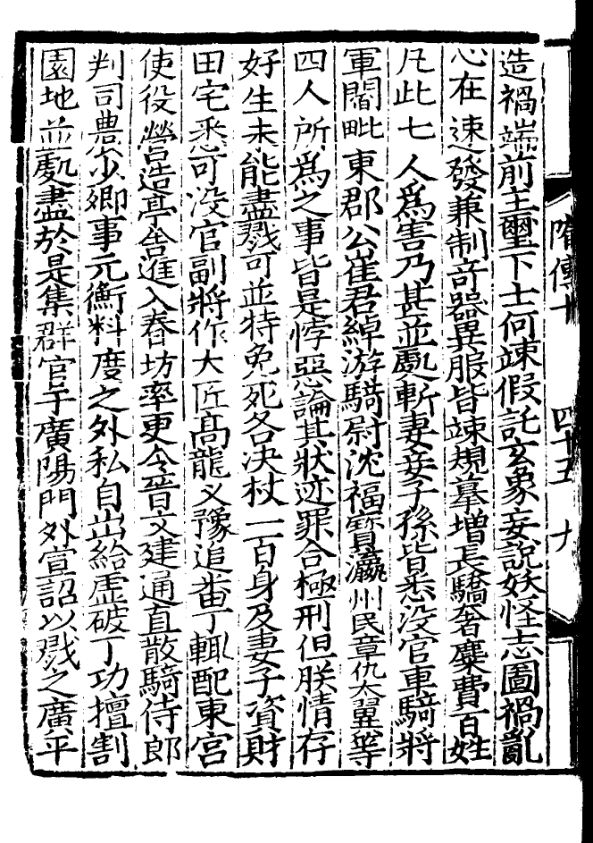 造禍端前主璽下士何竦假託玄象妄說妖怪志圖禍亂
心在速發兼制竒器異服皆竦規摹增長驕奢糜費百姓
凡此七人爲害乃甚並處斬妻妾子孫皆悉没官車騎將
軍閻毗東郡公崔君綽游騎尉沈福寶瀛州民章仇太翼等
四人所爲之事皆是悖惡論其狀迹罪合極刑但朕情存
好生未能盡戮可並特免死各决杖一百身及妻子資財
田宅悉可没官副將作大匠高龍义豫追番丁輒配東宮
使役營造亭舎進入春坊率更令晉文建通直散騎侍郎
判司農少卿事元衡料度之外私自出給虚破丁功擅割
園地並處盡於是集群官于廣陽門外宣詔以戮之廣平
隋傳十 四十五 九